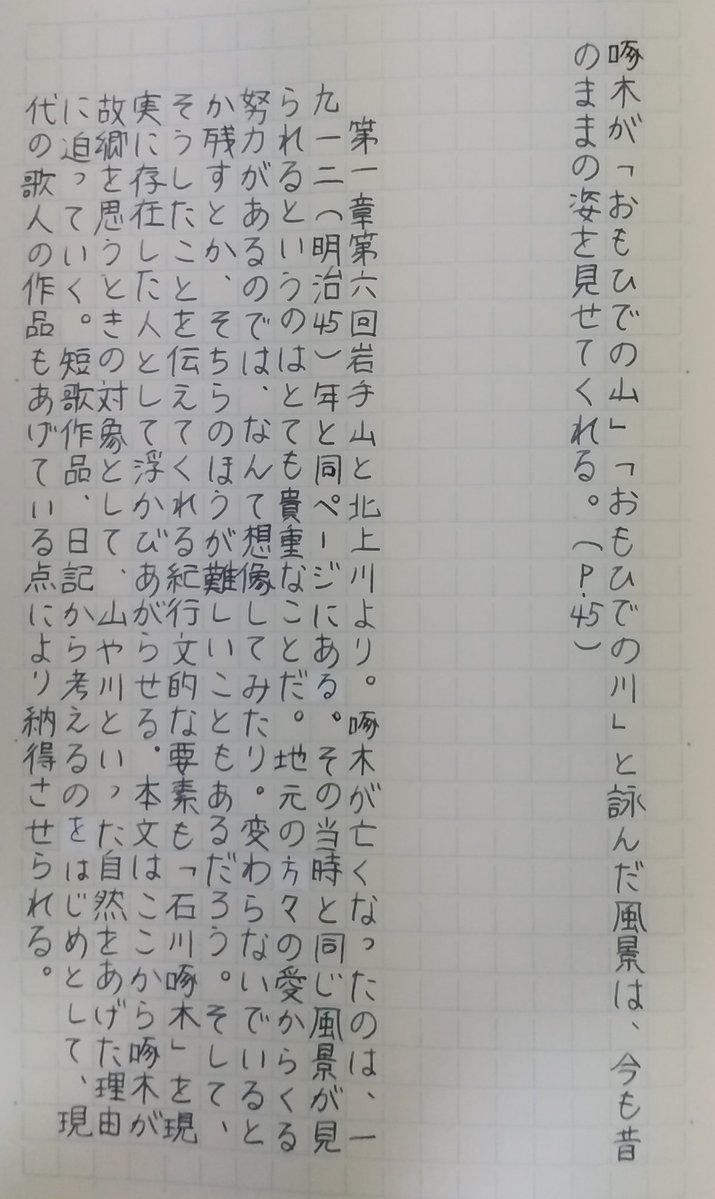 啄木が「おもひでの山」「おもひでの川」と詠んだ風景は、今も昔
のままの姿を見せてくれる。（P.45）
第一章第六回岩手山と北上川より。啄木が亡くなったのは、一
九一二（明治45）年と同ページにある。その当時と同じ風景が見
られるというのはとても貴重なことだ。地元の方々の愛からくる
努力があるのでは、なんて想像してみたり。変わらないでいると
か残すとか、そちらのほうが難しいこともあるだろう。そして、
そうしたことを伝えてくれる紀行文的な要素も「石川啄木」を現
実に存在した人として浮かびあがらせる。本文はここから啄木が
故郷を思うときの対象として、山や川といった自然をあげた理由
に迫っていく。短歌作品、日記から考えるのをはじめとして、現
代の歌人の作品もあげている点により納得させられる。